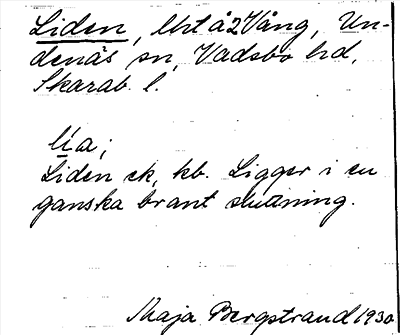 Liden, lht å 2 Vång, Un-
denäs sn, Vadsbo hd,
Skarab. l.
lía;
Liden ek, kb. Ligger i en
ganska brant sluttning.
Maja Bergstrand 1930